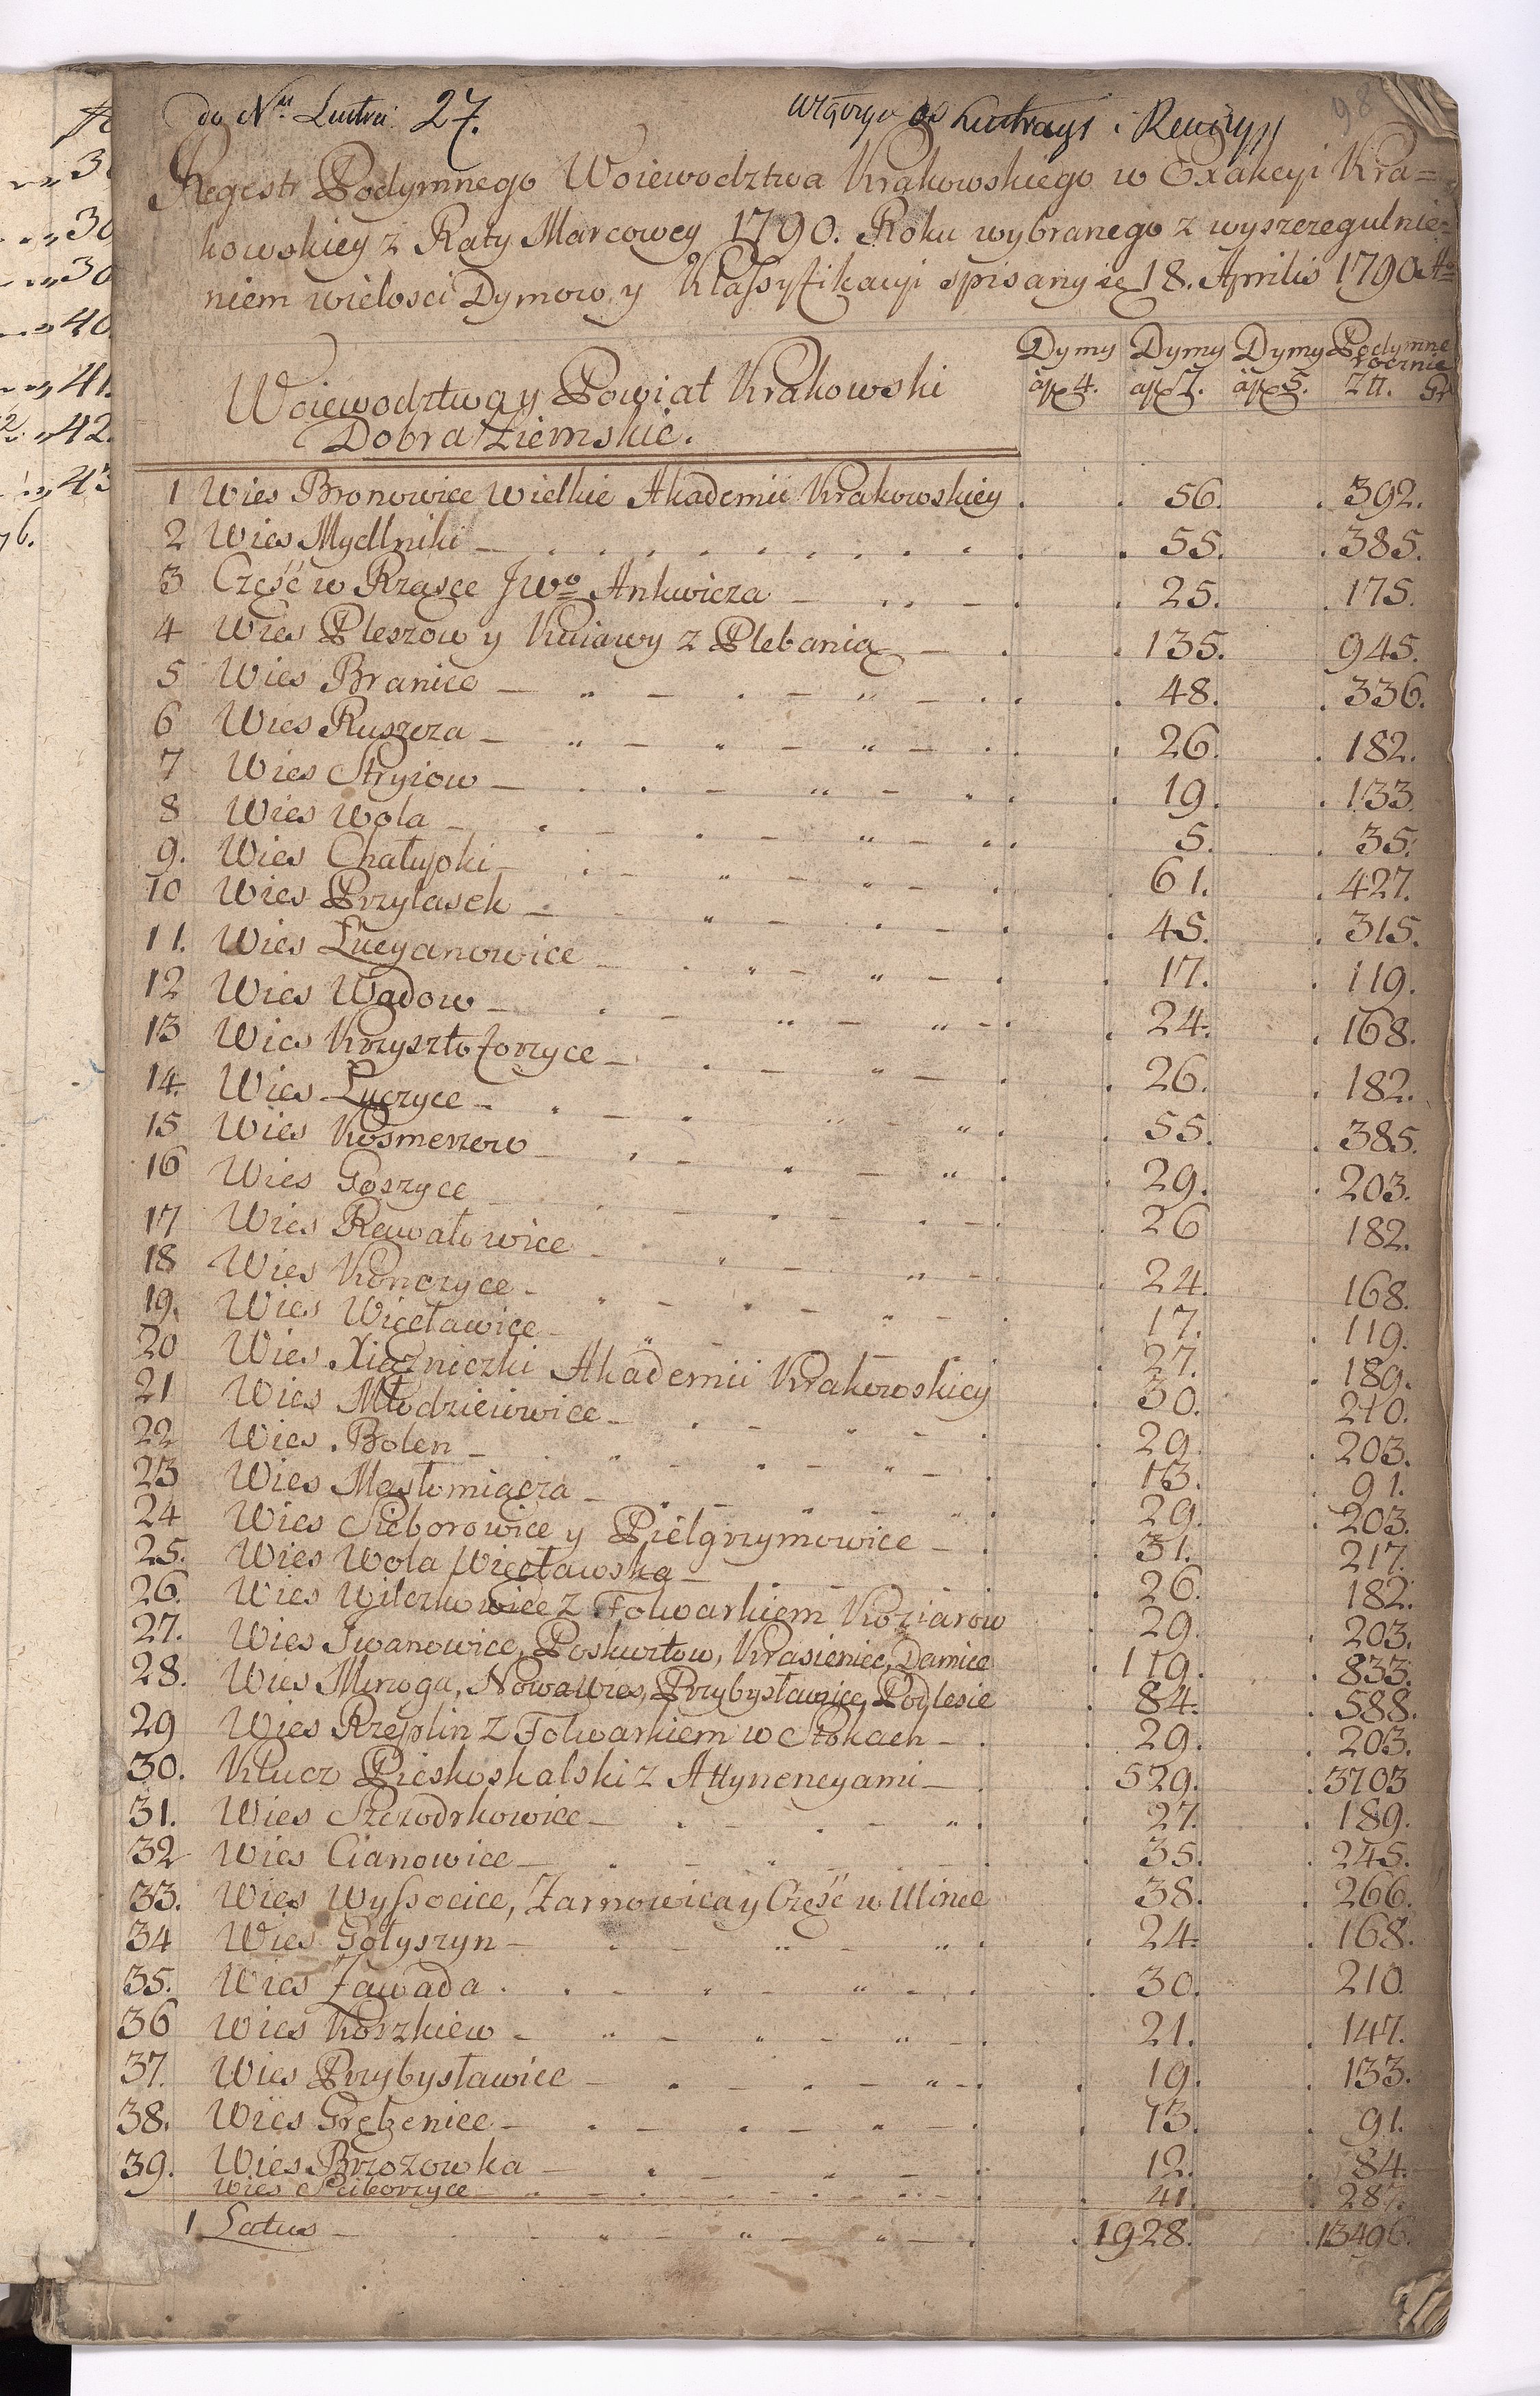 do N. Lustr: 27.
do Lustracyi i Rewizyi
98
Regestr Podymnego Woiewodztwa Krakowskiego w Exakcyi Kra=
kowskiey z Raty Marcowey 1790. Roku wybranego z wyszczegulnie=
niem wielosci Dymow y Klassyfikacyi spisany się 18. Aprilis 1790
Woiewodztwa y Powiat Krakowski
Dobra Ziemskie.
Dymy Dymy Dymy Podymne rocznie
à 4. à 7. à 5. Złł. Gr
1 Wies Bronowice Wielkie Akademii Krakowskiey 56. 392.
2 Wies Mydlniki 55. 385.
3 Część w Rząsce JWo Ankwicza 25. 175.
4 Wies Pleszow y Kuiawy z Plebanią 135. 945.
5 Wies Branice 48. 336.
6 Wies Ruszcza 26. 182.
7 Wies Stryiow 19. 133.
8 Wies Wola 5. 35.
9. Wies Chałupki 61. 427.
10 Wies Przylasek 45. 315.
11. Wies Lucyanowice 17. 119.
12 Wies Wadow 24. 168.
13 Wies Krzysztoforzyce 26. 182.
14. Wies Łuczyce 55. 385.
15 Wies Kosmerzow 29. 203.
16 Wies Goszyce 26 182.
17 Wies Rawałowice 24. 168.
18 Wies Konczyce 17. 119.
19. Wies Więcławice 27. 189.
20 Wies Xiązniczki Akademii Krakowskiey 30. 210.
21 Wies Młodzieiowice 29. 203.
22 Wies Bolen 13. 91.
23 Wies Masłomiącza 29. 203.
24 Wies Sieborowice y Pielgrzymowice 31. 217.
25. Wies Wola Więcławska 26. 182.
26. Wies Wilczkowice z Folwarkiem Koziarow 29. 203.
27. Wies Iwanowice, Poskwitow, Krasieniec, Damice 119. 833.
28. Wies Minoga, Nowawies, Przybysławice, Podlesie 84. 588.
29 Wies Rzeplin z Folwarkiem w Stokach 29. 203.
30. Klucz Pieskoskalski z Attynencyami 529. 3703
31. Wies Szczodrkowice 27. 189.
32 Wies Cianowice 35. 245.
33. Wies Wyssocice, Zarnowica y Część w Ulince 38. 266.
34 Wies Gołyszyn 24. 168.
35. Wies Zawada 30. 210.
36 Wies Korzkiew 21. 147.
37. Wies Przybysławice 19. 133.
38. Wies Grębenice 13. 91.
39. Wies Brzozowka 12. 84.
Wies Sciborzyce 41. 287.
1 Latus 1928. 13496.